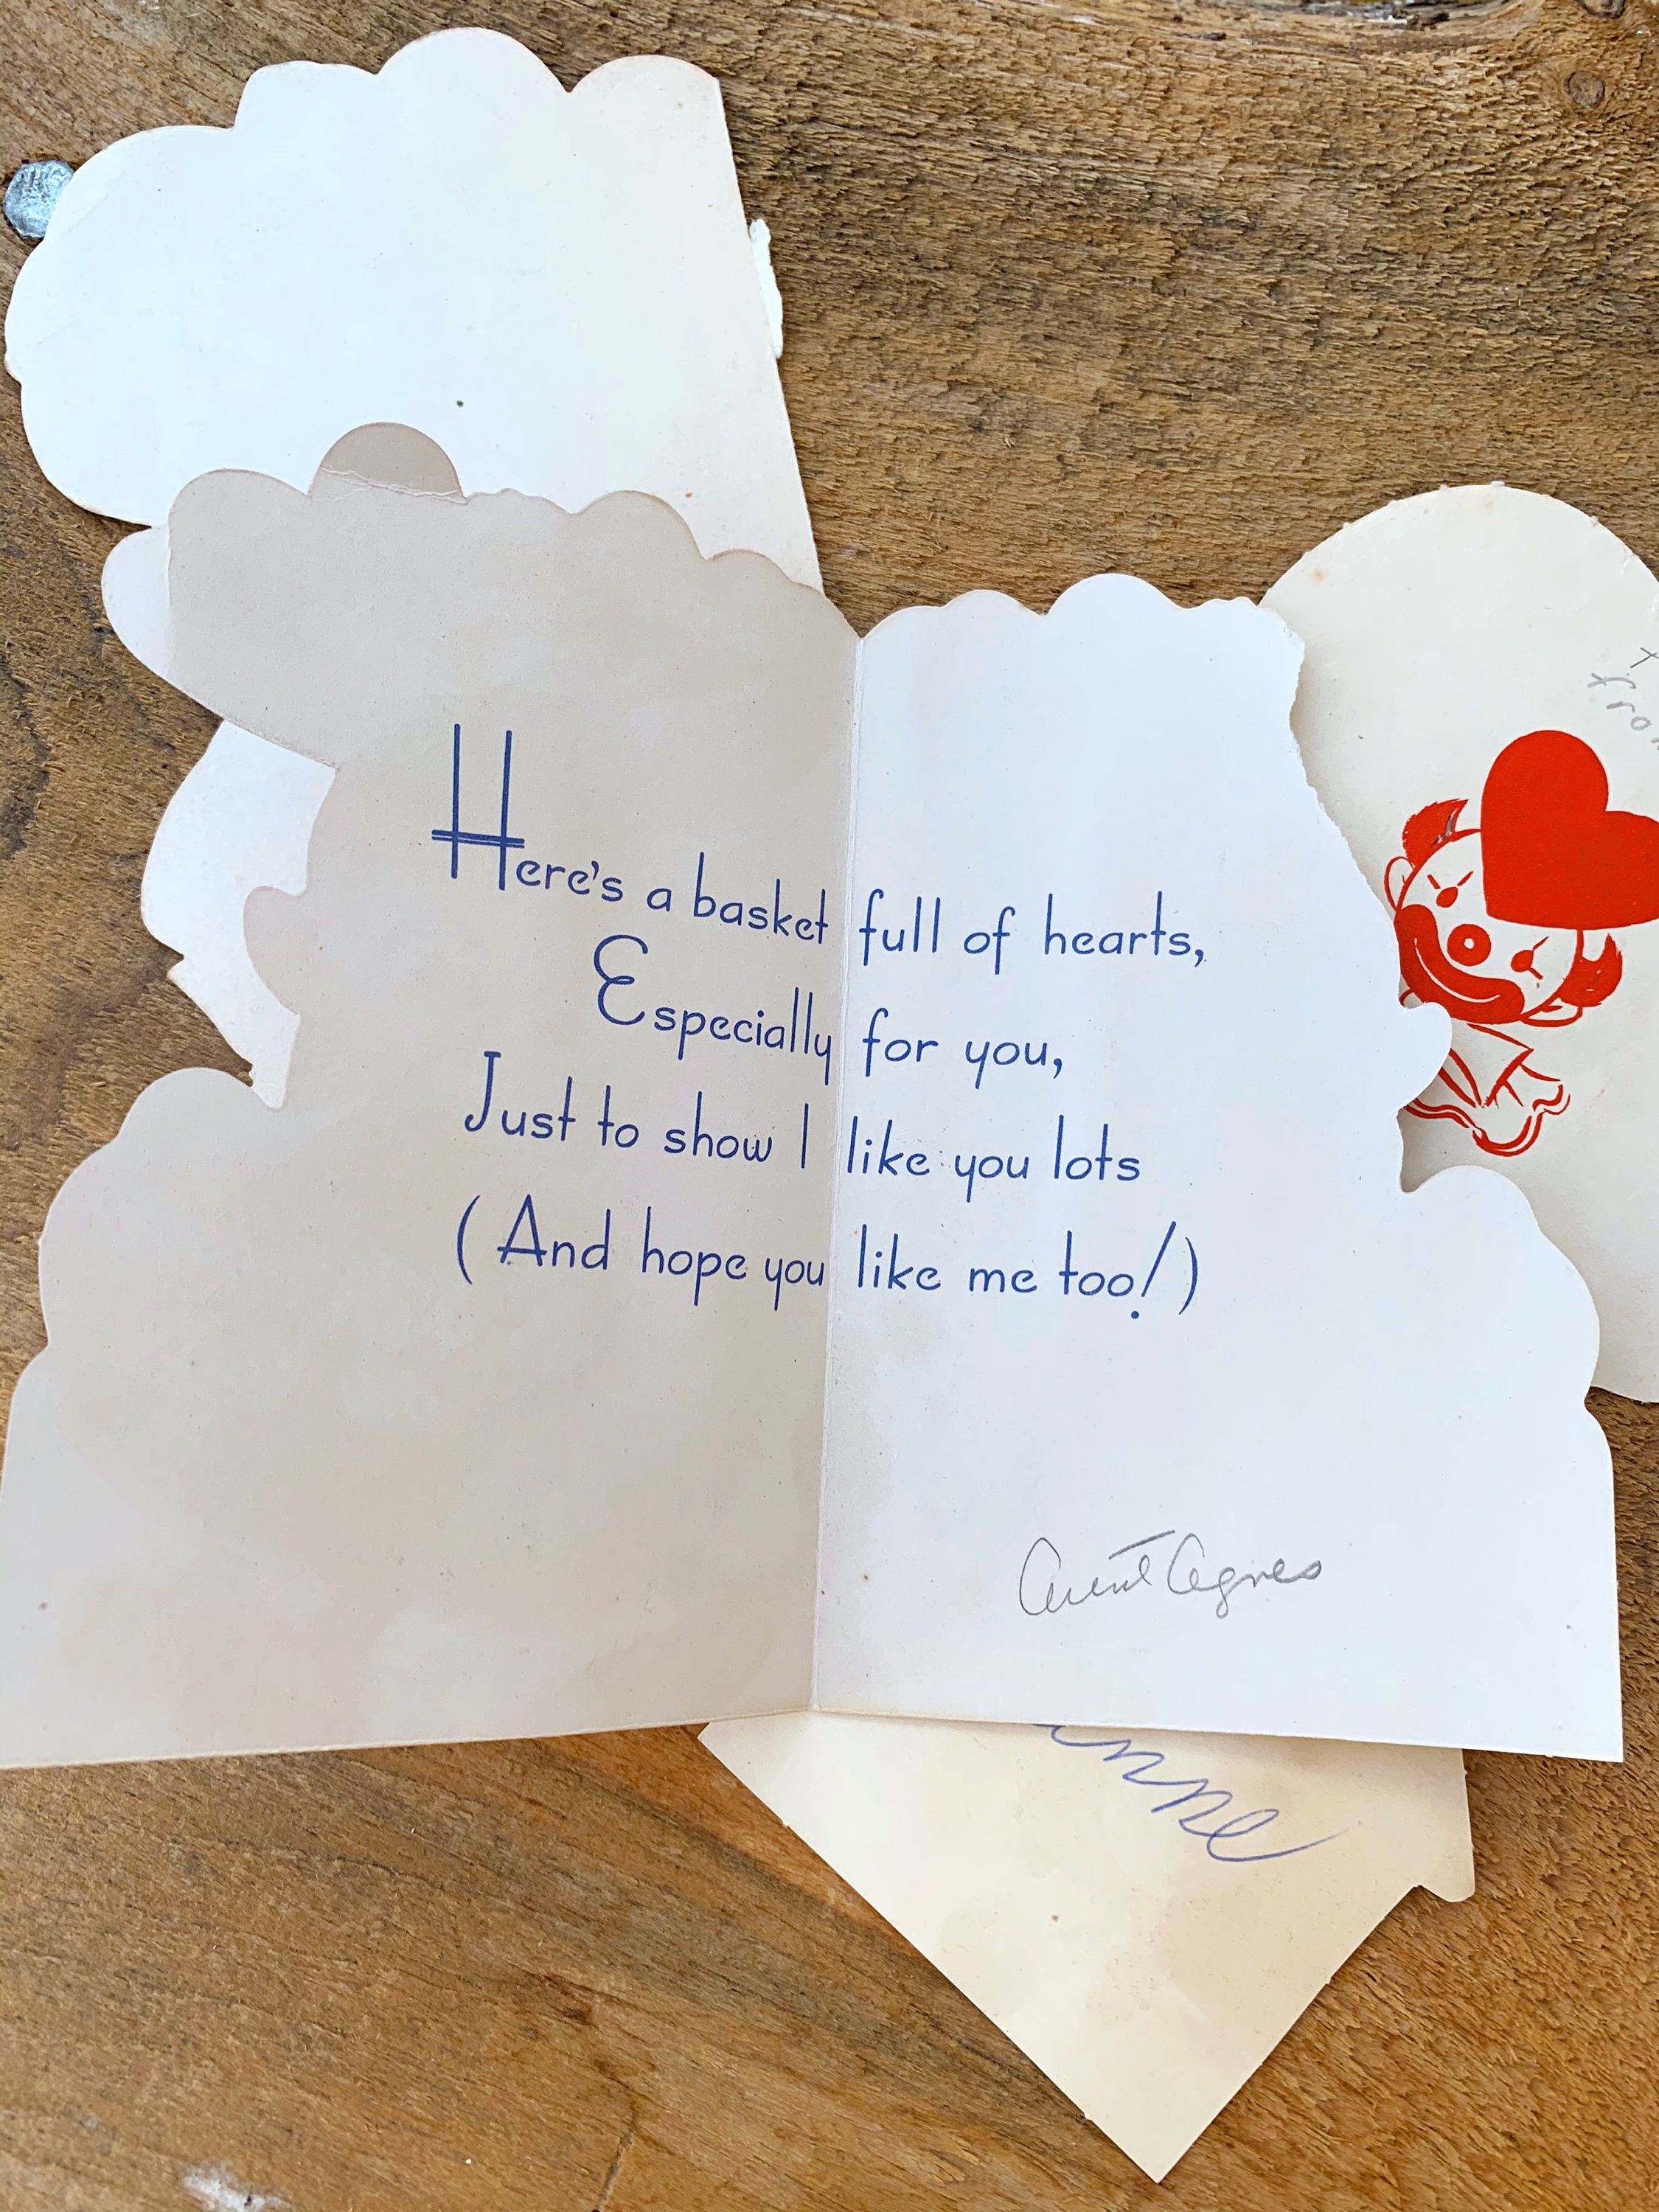 Here's a basket full of hearts,
Especially for you,
Just to show I like you lots
(And hope you like me too!)
Aunt Agnes